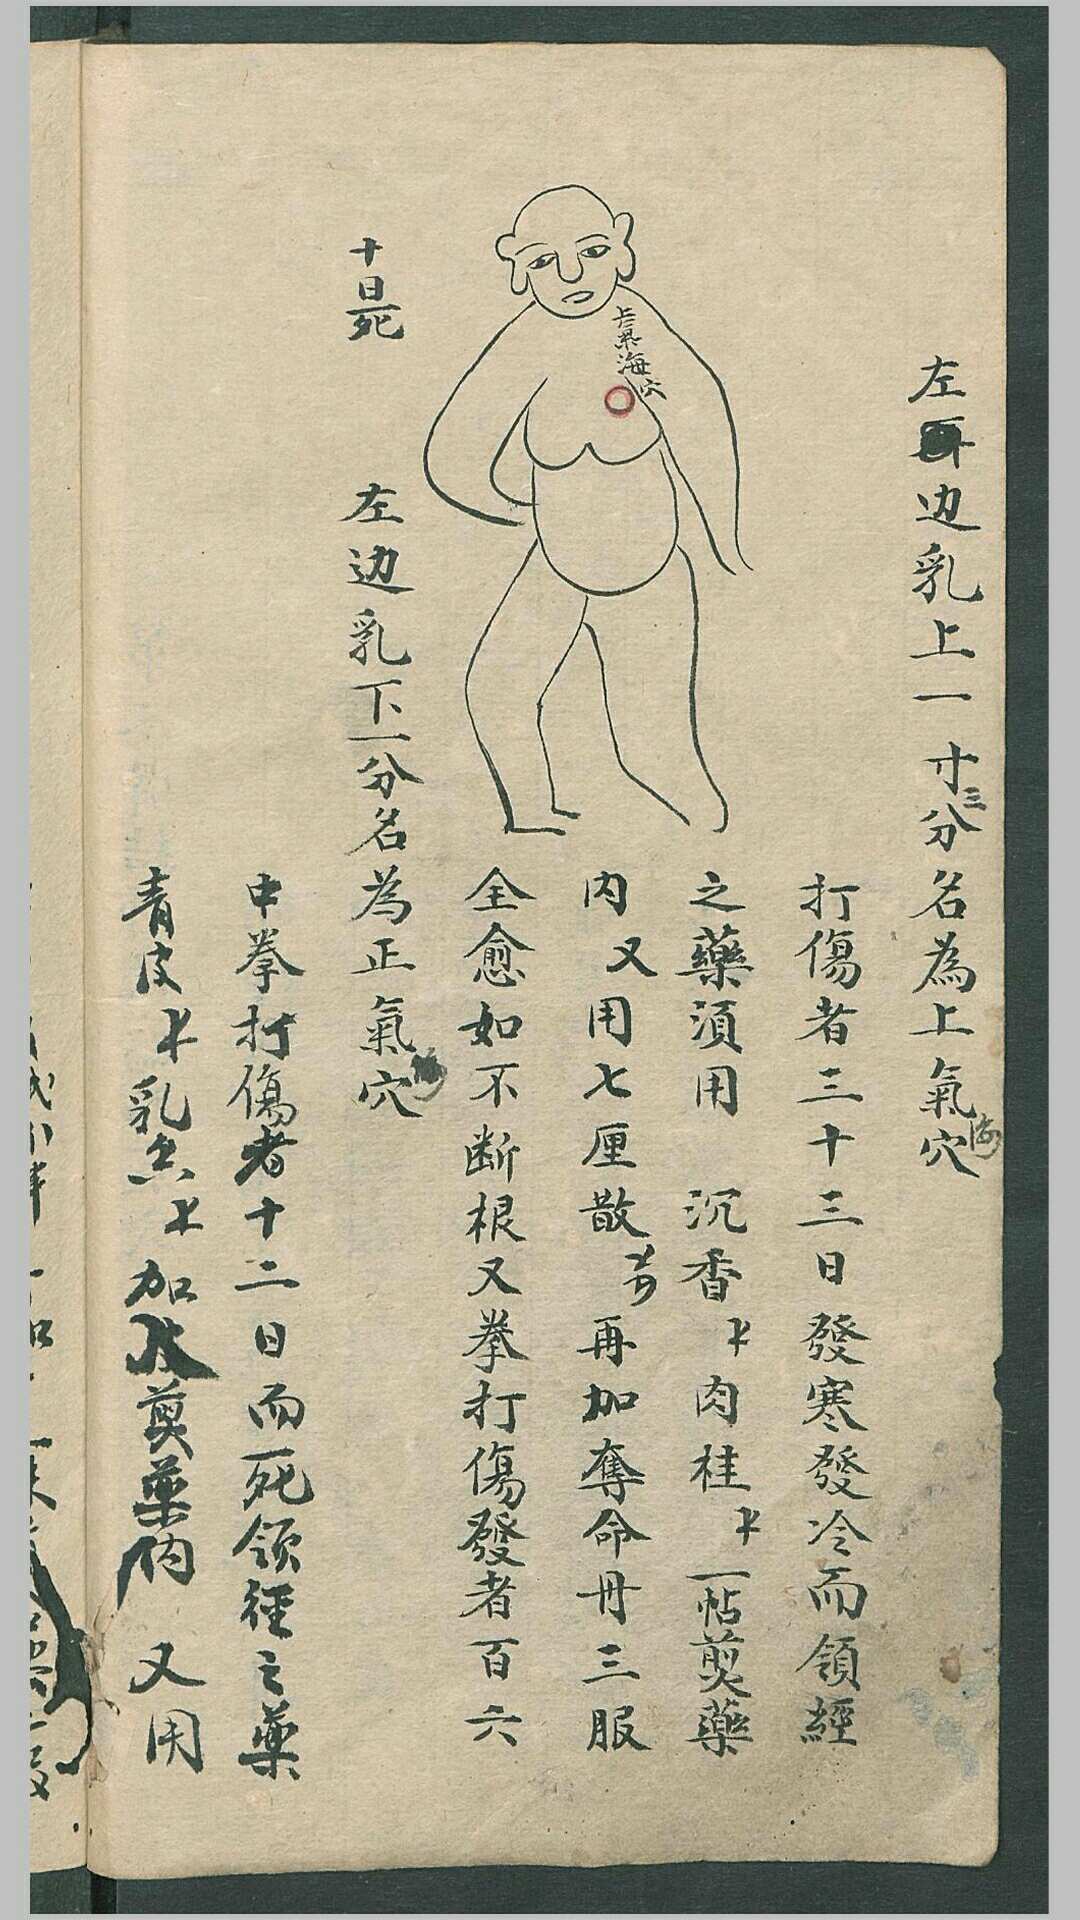 左边乳上一寸三分名為上氣海穴
打傷者三十三日發寒發冷而領經
之藥須用 沉香 肉桂 一帖煎藥
内又用七厘散 再加奪命丹三服
全愈如不断根又拳打傷發者百六
十日死
上氣海穴
左边乳下一分名為正氣海穴
中拳打傷者十二日而死領徑之藥
青皮 乳香 加 煎藥内 又用